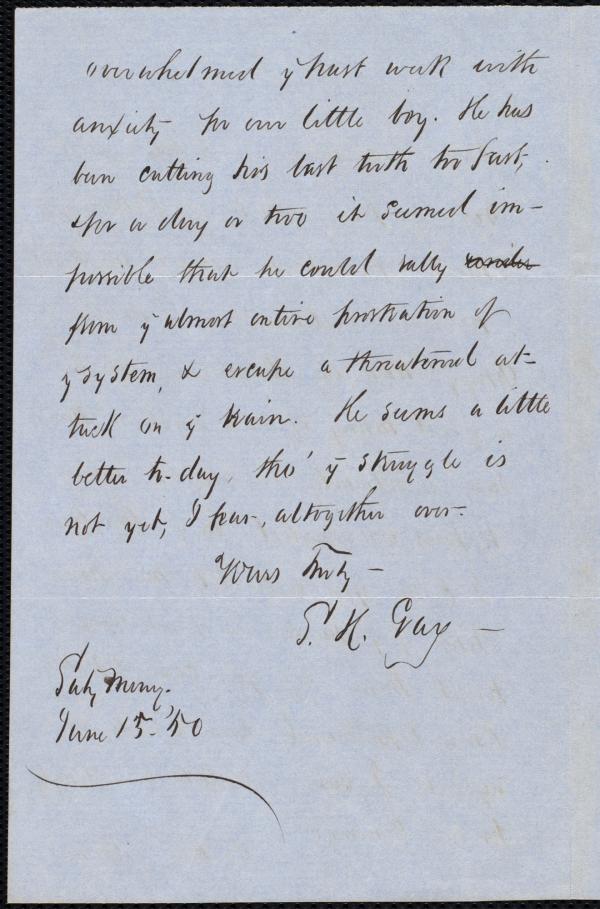 overwhelmed ẙ past week with
anxiety for our little boy. He has
been cutting his last teeth too fast,
& for a day or two it seemed im-
possible that he could rally
from ẙ almost entire prostration of
ẙ system, & escape a threatened at-
tack on ẙ brain. He seems a little
better to-day, tho' ẙ struggle is
not yet, I fear, altogether over.
Yours Truly —
S. H. Gay —
Saty Morng.
June 15. '50